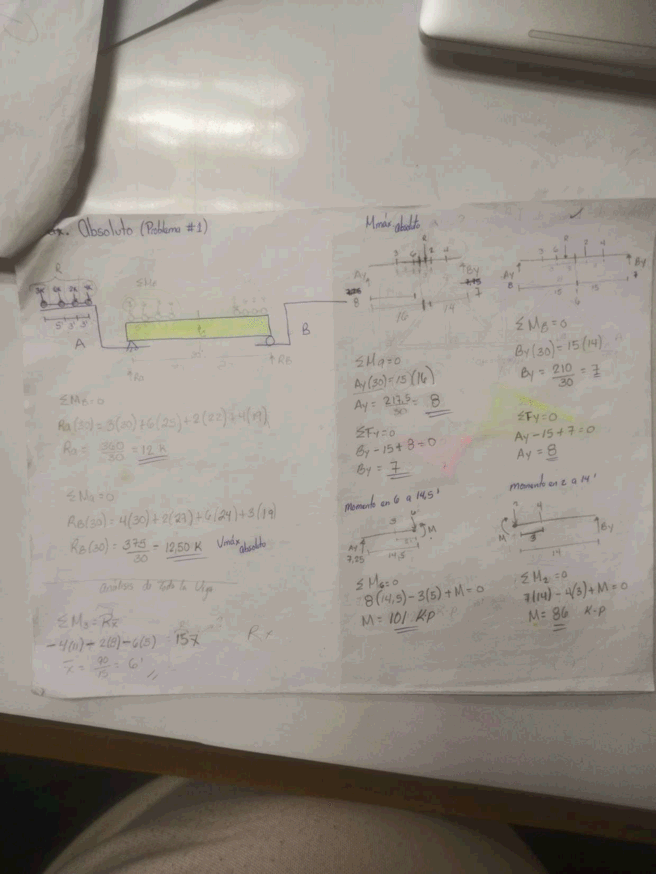 Absoluto (Problema #1)
R
3k 6k 2k 4k
5' 3' 3'
A
B
RA
RB
ΣMB=0
RA(30)=3(30)+6(25)+2(22)+4(19)
RA = 360/30 = 12 K
ΣMA=0
RB(30)=4(30)+2(27)+6(24)+3(19)
RB(30)= 375/30 - 12,50 K Vmáx absoluto
Análisis de toda la Viga
-4(0)-2(3)-6(6) 15x
Mmáx absoluto
3 6 R 2 4
Ay
By
8
7
16
14
ΣMB=0
Ay(30)=15(16)
Ay= 217,5/30 = 8
ΣFy=0
By-15+8=0
By= 7
Momento en 6 a 14,5'
3
6
M
Ay
7,25
14,5
8(14,5)-3(5)+M=0
M= 101 K-p
3 6 R 2 4
Ay
By
8
7
15 15
6
ΣMB=0
By(30)=15(14)
By= 210/30 = 7
ΣFy=0
Ay-15+7=0
Ay= 8
Momento en 2 a 14'
4
M
3
By
14
ΣM2=0
7(14)-4(3)+M=0
M= 86 K-p